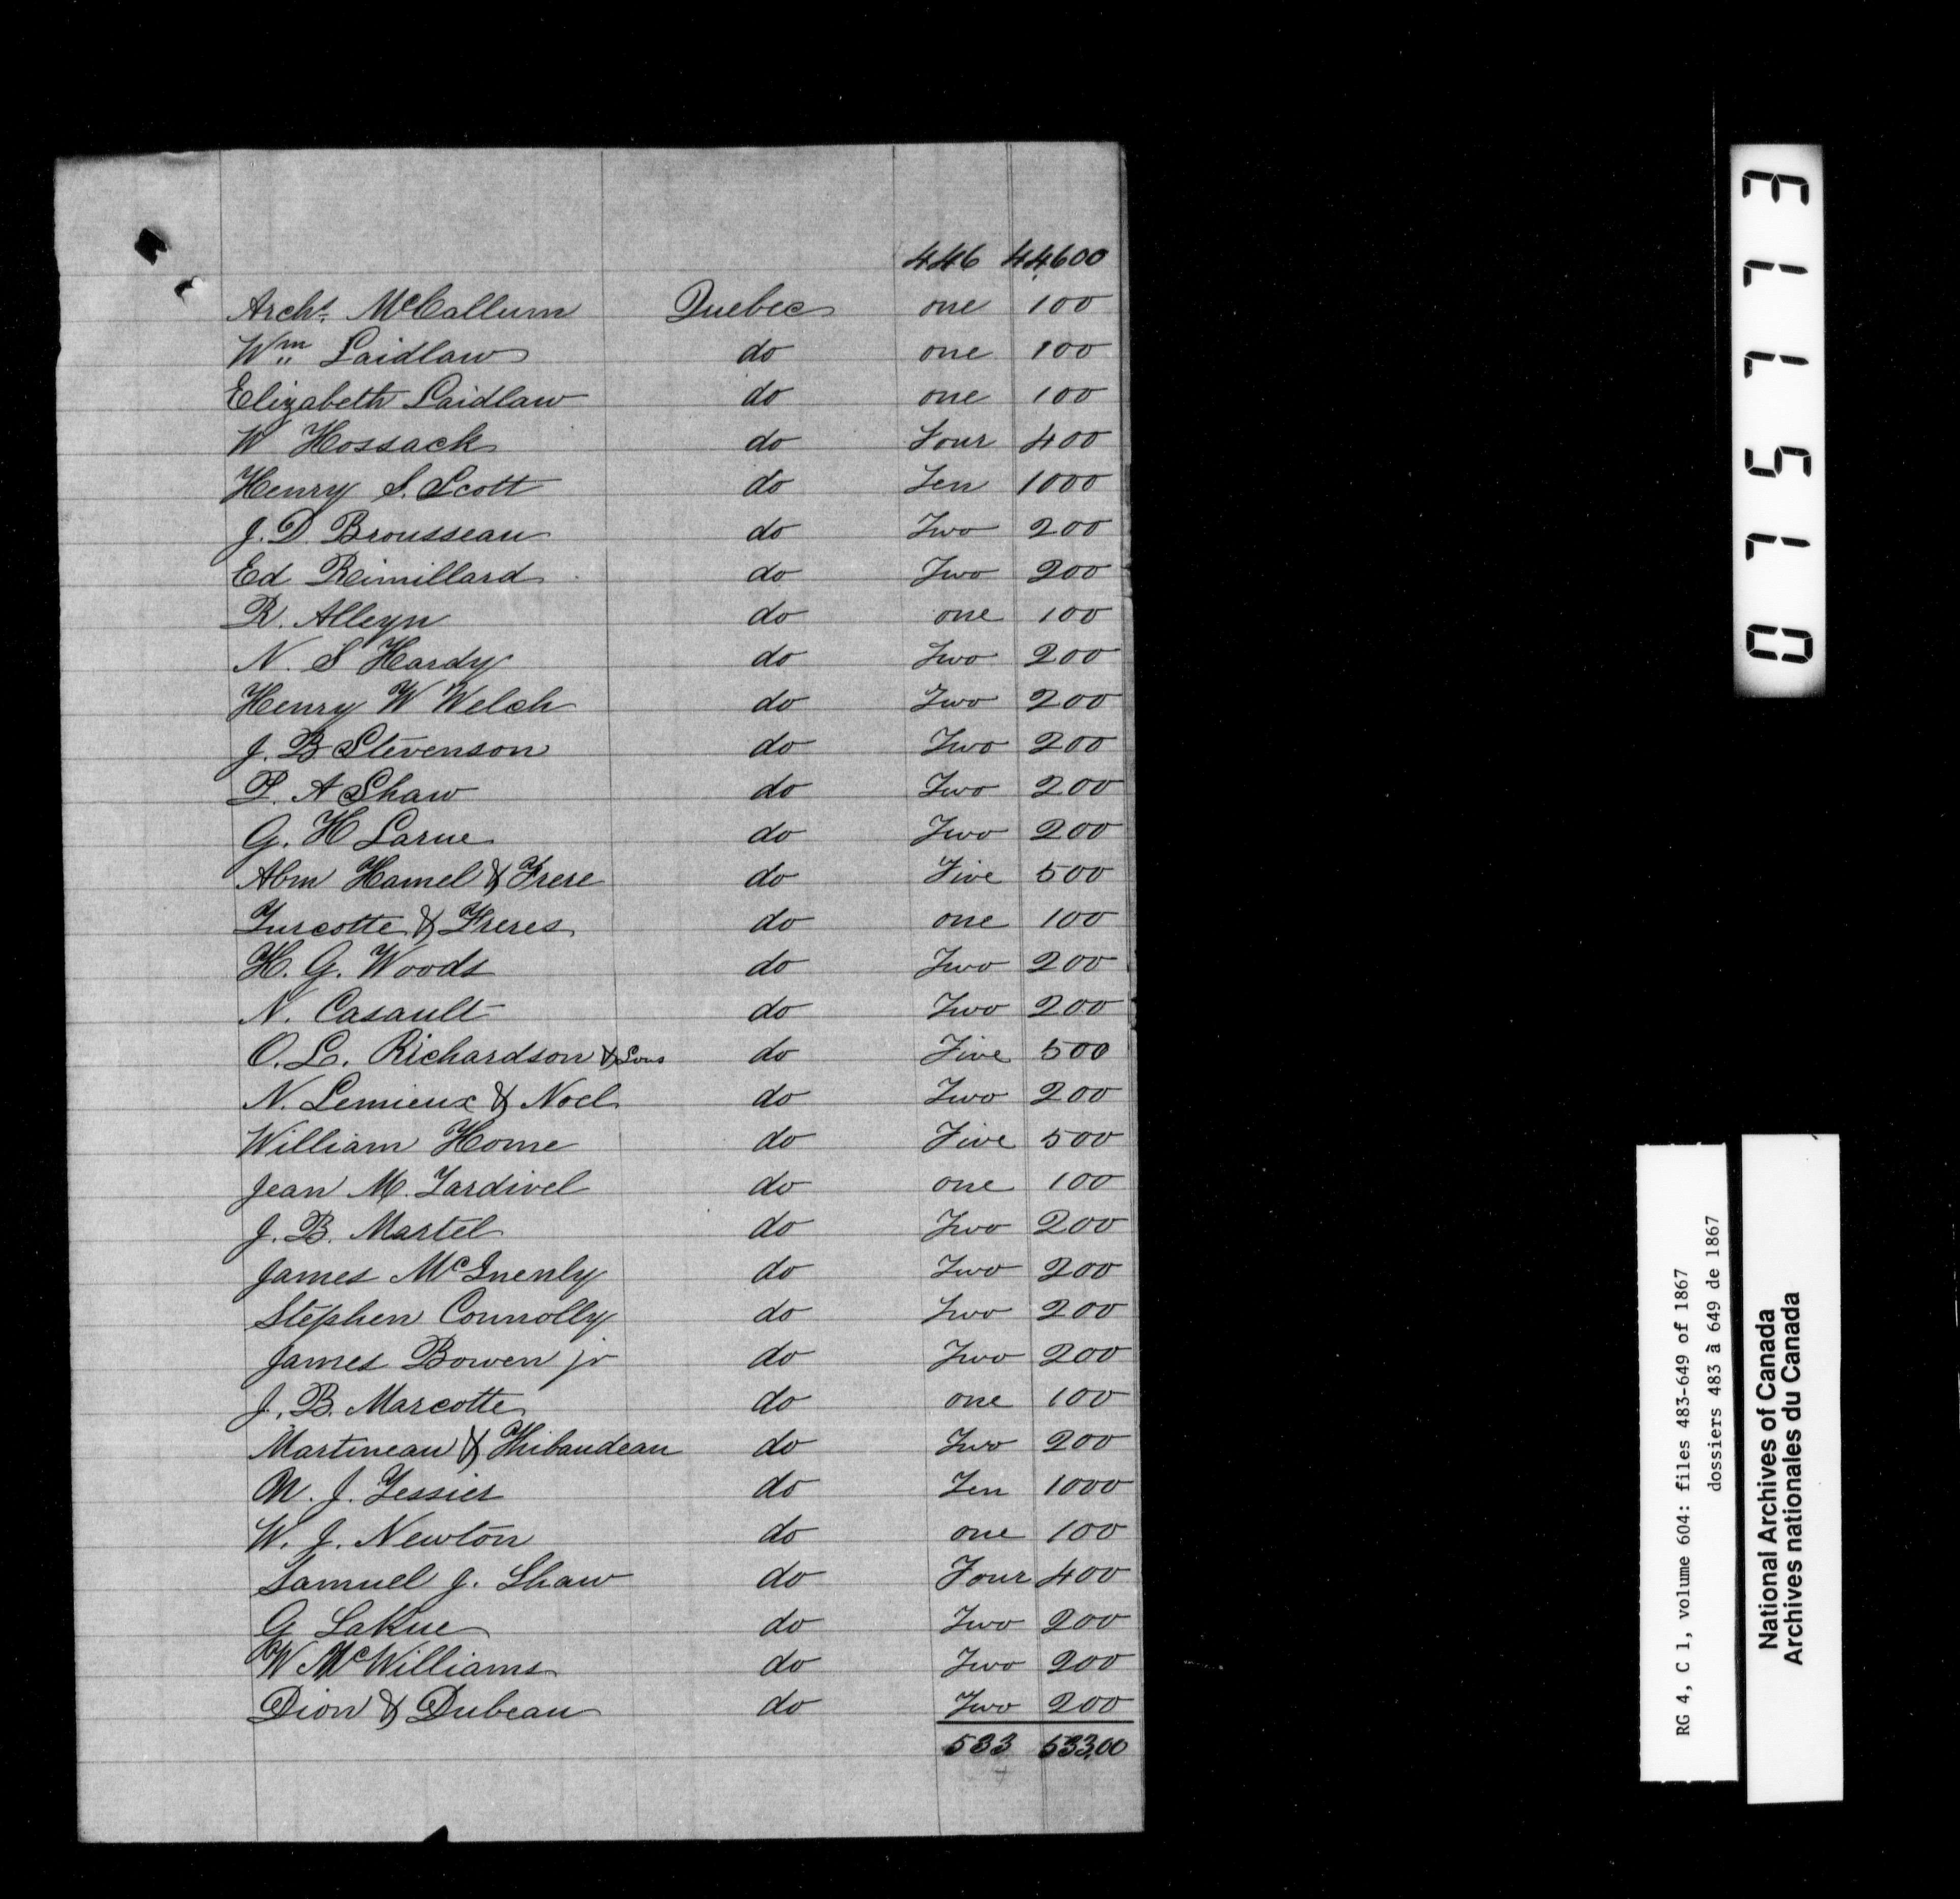 446 44600
Archd. McCallum Quebec one 100
Wm Laidlaw do one 100
Elizabeth Laidlaw do one 100
W Hossack do Four 400
Henry S. Scott do Ten 1000
J. D. Brousseau do Two 200
Ed Reimillard do Two 200
R. Alleyn do one 100
N. S Hardy do Two 200
Henry W Welch do Two 200
J. B Stevenson do Two 200
P. A Shaw do Two 200
G. H Larue do Two 200
Abm Hamel & Frere do Five 500
Turcotte & Freres do one 100
H. G. Woods do Two 200
N. Casault do Two 200
O. L. Richardson & Sons do Five 500
N. Lemieux & Noel do Two 200
William Home do Five 500
Jean M. Tardivel do one 100
J. B. Martel do Two 200
James McInenly do Two 200
Stephen Connolly do Two 200
James Bowen jr do Two 200
J. B. Marcotte do one 100
Martineau & Thibaudeau do Two 200
M. J. Tessier do Ten 1000
W. J. Newton do one 100
Samuel J. Shaw do Four 400
G LaRue do Two 200
W McWilliams do Two 200
Dion & Dubeau do Two 200
533 53300
071573
RG 4, C 1, volume 604: files 483-649 of 1867
dossiers 483 à 649 de 1867
National Archives of Canada
Archives nationales du Canada